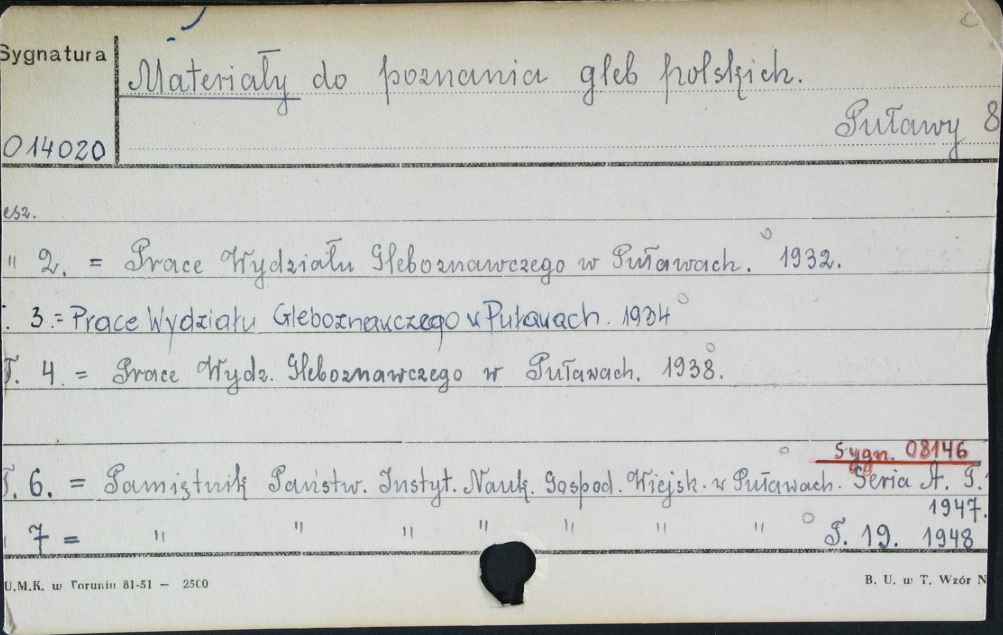 Sygnatura
Materiały do poznania gleb polskich.
Puławy 8
014020
esz.
" 2. = Prace Wydziału Gleboznawczego w Puławach. 1932.
. 3. = Prace Wydziału Gleboznawczego w Puławach. 1934
T. 4. = Prace Wydz. Gleboznawczego w Puławach. 1938.
Sygn. 08146
T. 6. = Pamiętnik Państw. Instyt. Nauk. Gospod. Wiejsk. w Puławach. Seria A. T.
1947.
7 = " " " " " " " T. 19. 1948
U.M.K. w Toruniu 81-51 — 2500
B. U. w T. Wzór N